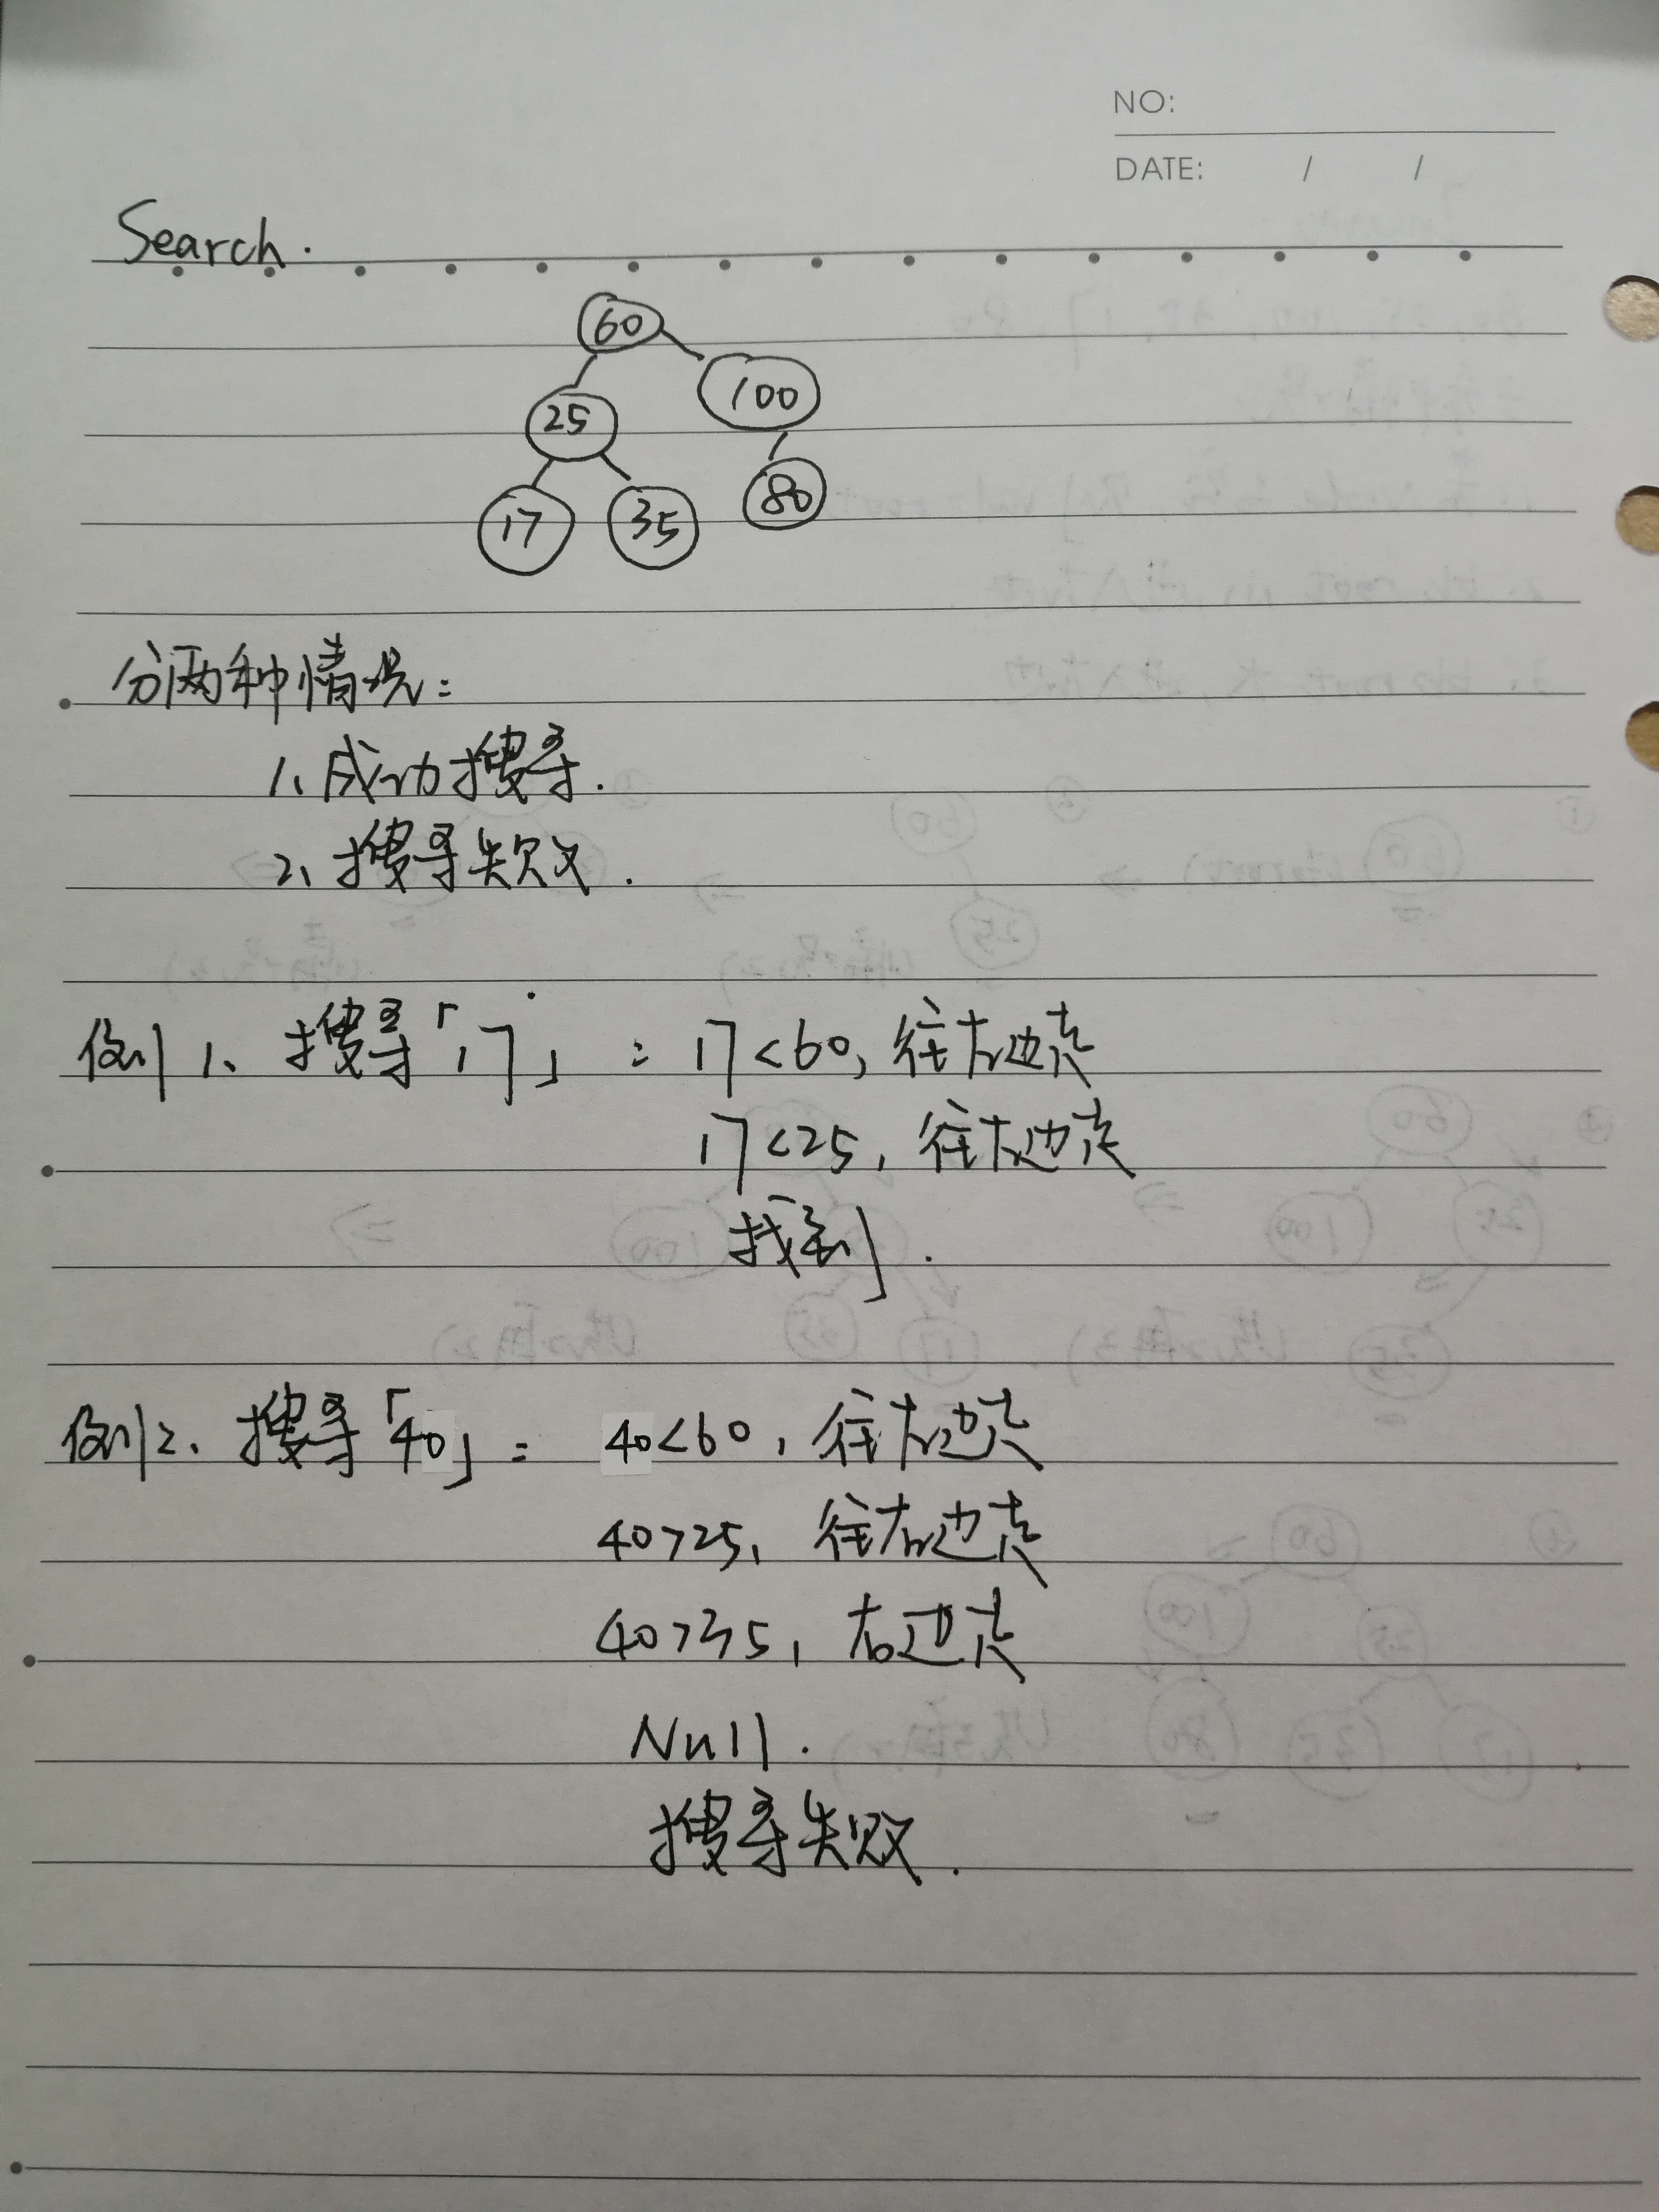 NO:
DATE: / /
Search.
60
100
25
80
17 35
分两种情况:
1、成功搜寻.
2、搜寻失败.
例1、搜寻「17」: 17<60, 往左边走
17<25, 往左边走
找到.
例2、搜寻「40」: 40<60, 往左边走
40>25, 往右边走
40>35, 右边走
Null.
搜寻失败.